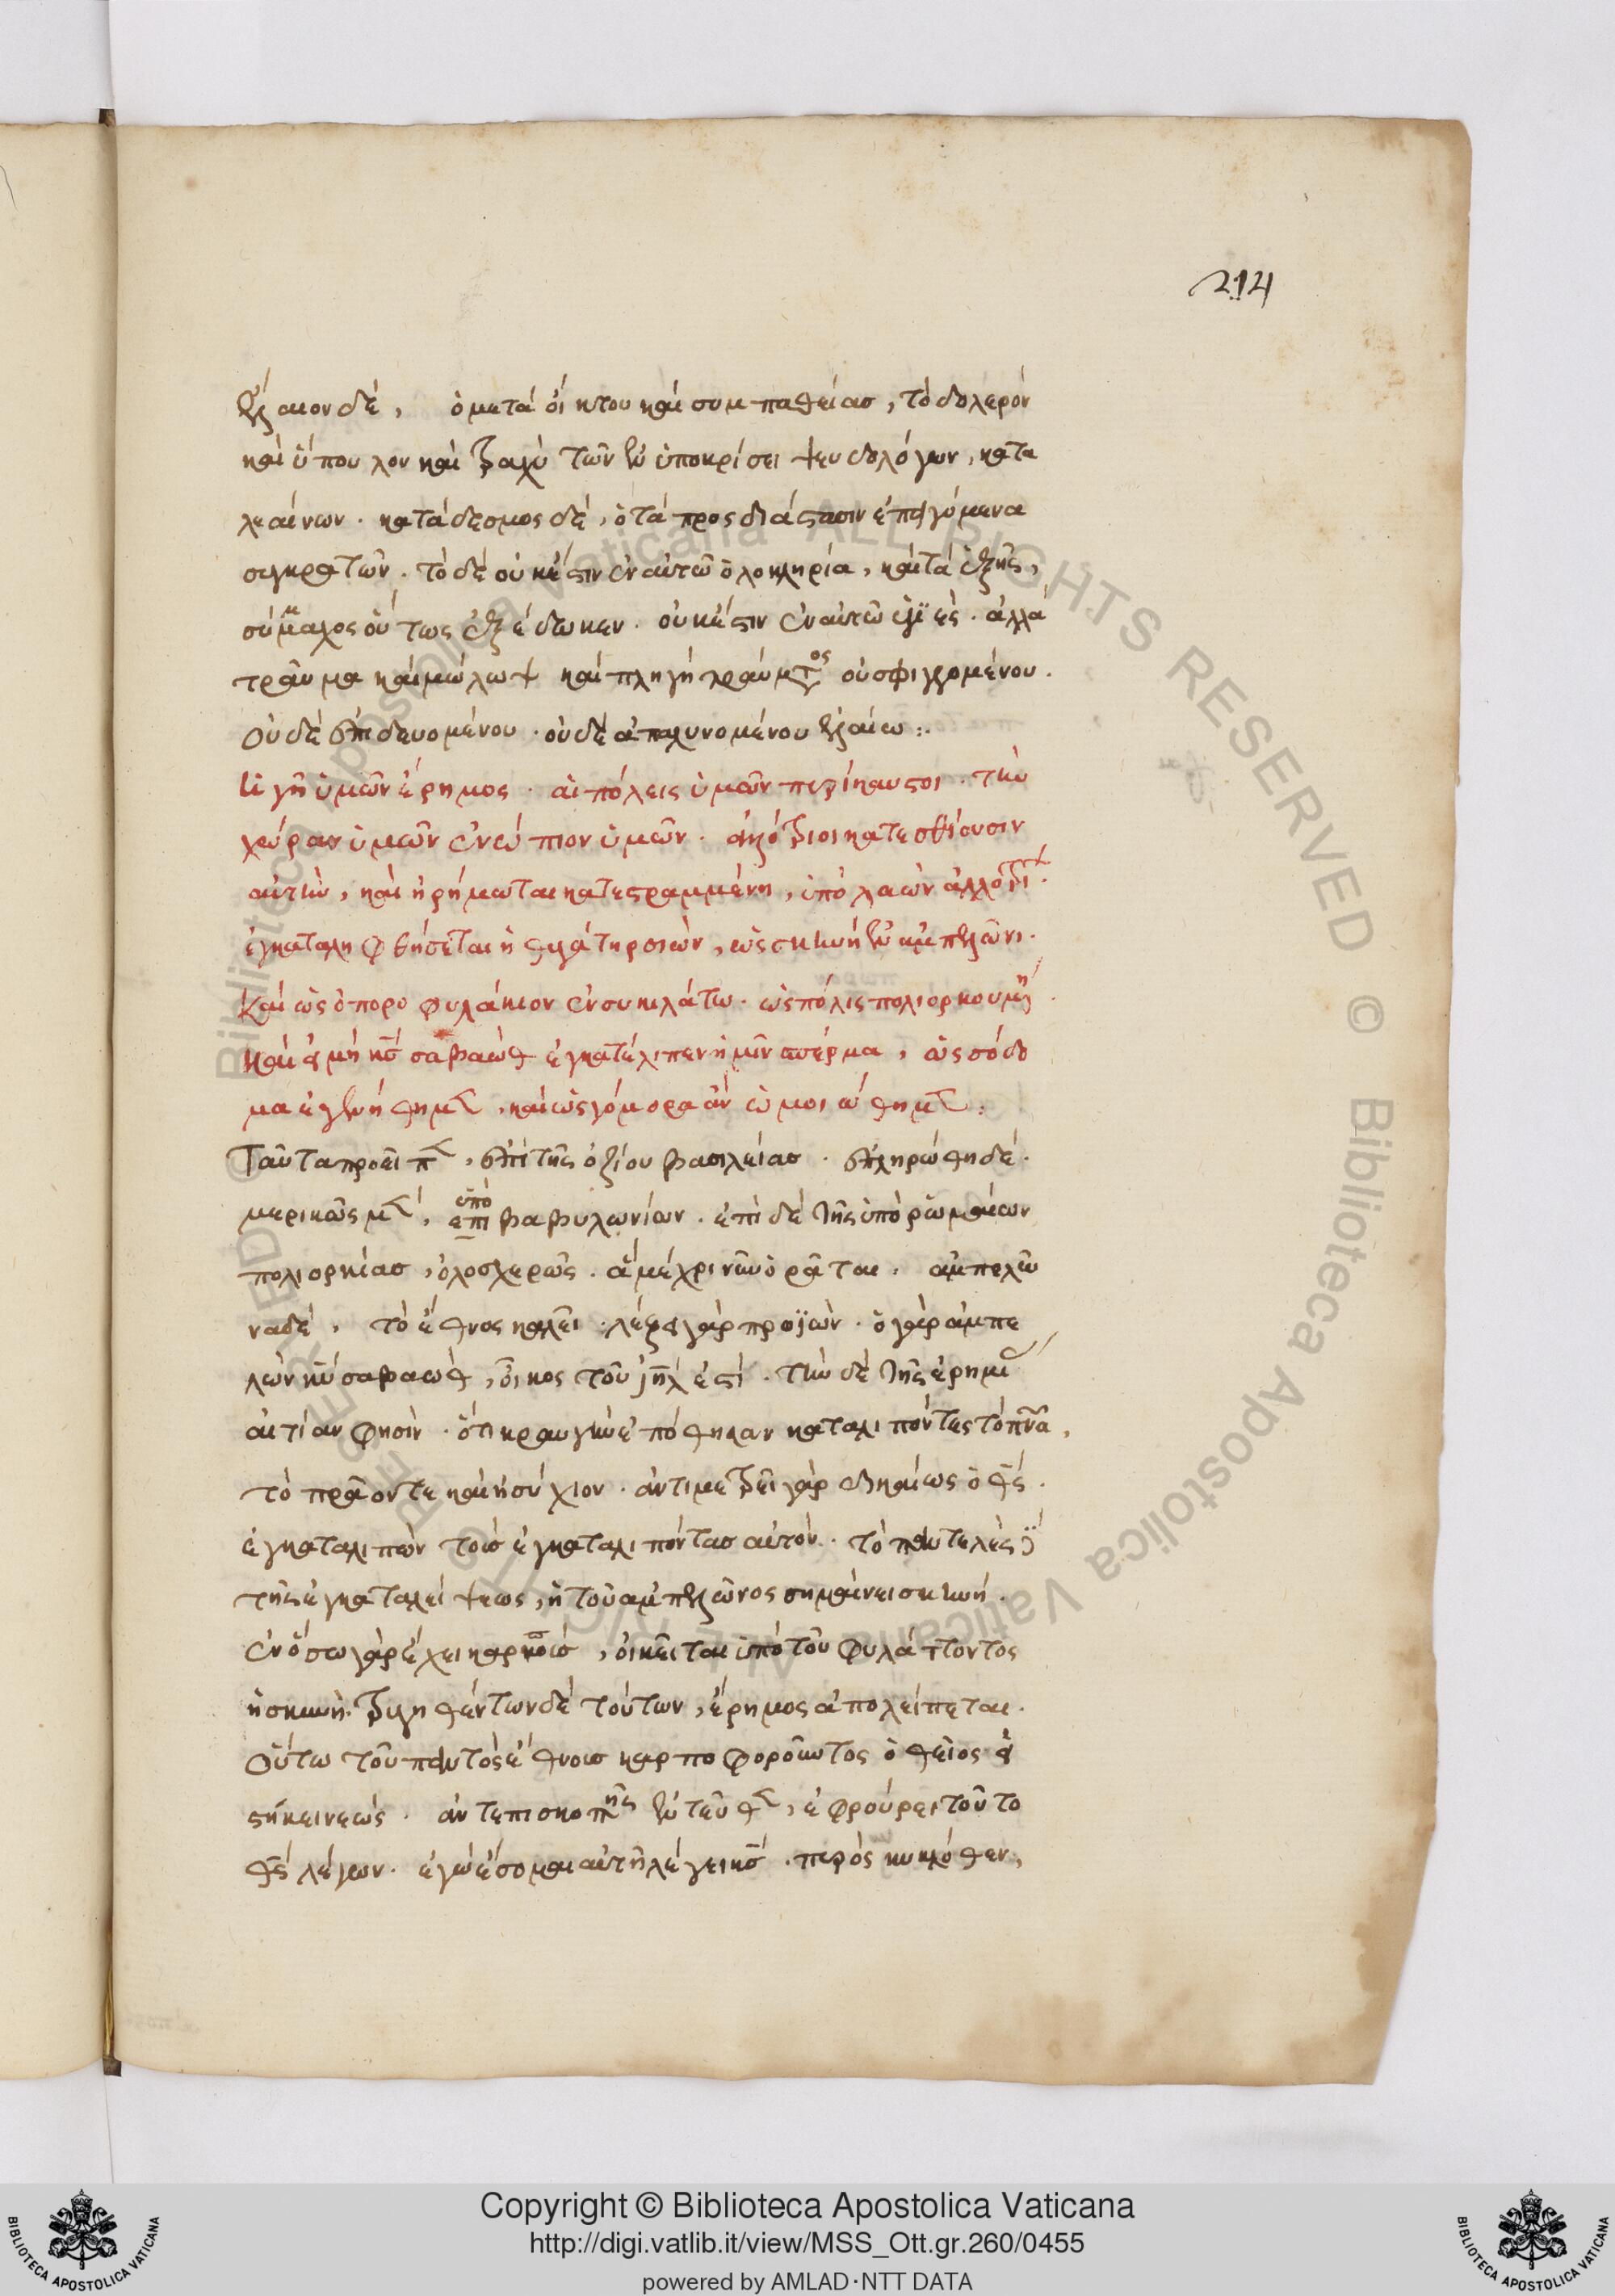 214
ἔλαιον δέ, ὁ μετὰ οἴκτου καὶ συμπαθείας, τὸ δολερὸν
καὶ ὕπουλον καὶ τραχὺ τῶν ἐν ὑποκρίσει ψευδολόγων, κατα
λεαίνων. κατάδεσμος δέ, ὁ τὰ πρὸς διάστασιν ἐπειγόμενα
συγκρατῶν. τὸ δὲ οὐκ ἔστιν ἐν αὐτῶ ὁλοκληρία, καὶ τὰ ἑξῆς,
σύμμαχος οὕτως ἐξέδωκεν. οὐκ ἔστιν ἐν αὐτῶ ὑγιές. ἀλλὰ
τραῦμα καὶ μώλωψ καὶ πληγὴ τραύματος οὐ σφιγγομένου.
οὐδὲ ἐπιδευομένου. οὐδὲ ἁπαλυνομένου ἐλαίω:.
ἡ γῆ ὑμῶν ἔρημος. αἱ πόλεις ὑμῶν πυρίκαυστοι. τὴν
χώραν ὑμῶν ἐνώπιον ὑμῶν. ἀλλότριοι κατεσθίουσιν
αὐτὴν, καὶ ἠρήμωται κατεστραμμένη, ὑπὸ λαῶν ἀλλοτρίων.
ἐγκαταληφθήσεται ἡ θυγάτηρ σιὼν, ὡς σκηνὴ ἐν ἀμπελῶνι.
Καὶ ὡς ὀποροφυλάκιον ἐν συκιλάτω. ὡς πόλις πολιορκουμένη.
Καὶ εἰ μὴ κς σαβαὼθ ἐγκατέλιπεν ἡμῖν σπέρμα, ὡς σόδο
μα ἐγενήθημεν, καὶ ὡς γόμορα ἂν ὡμοιώθημεν:
Ταῦτα προεῖπεν, ἐπὶ τῆς ὀζίου βασιλείας. ἐπληρώθη δέ.
μερικῶς μὲν, ὑπὸ
επι βαβυλωνίων. ἐπὶ δὲ τῆς ὑπὸ ῥωμαίων
πολιορκίας, ὁλοσχερῶς. ἃ μέχρι νῦν ὁρᾶται. ἀμπελῶ
να δέ, τὸ ἔθνος καλεῖ. λέξει γὰρ προϊών. ὁ γὰρ ἀμπε
λὼν κυ σαβαὼθ, οἶκος τοῦ ιηλ ἐστί. τὴν δὲ τῆς ἐρημίας
αἰτίαν φησὶν. ὅτι κραυγὴν ἐπόθησαν καταλιπόντες τὸ πνα,
τὸ πρᾶον τε καὶ ἡσύχιον. ἀντιμετρεῖ γὰρ δικαίως ὁ θς.
ἐγκαταλιπὼν τοὺς ἐγκαταλιπόντας αὐτόν. τὸ παντελὲς
τῆς ἐγκαταλείψεως, ἡ τοῦ ἀμπελῶνος σημαίνει σκηνή.
ἐν ὅσω γὰρ ἔχει καρποὺς, οἰκεῖται ὑπὸ τοῦ φυλάττοντος
ἡ σκηνή. τρυγηθέντων δὲ τούτων, ἔρημος ἀπολείπεται.
Οὕτω τοῦ παντὸς ἔθνους καρποφοροῦντος ὁ θεῖος εἰ
στήκει νεώς. ἅν τ ἐπισκοπῆς ἐντεῦθεν, ἐφρούρει τοῦτο
θς λέγων. ἐγὼ ἔσομαι αὐτῆ λέγει κς. πυρὸς κυκλόθεν,
Copyright © Biblioteca Apostolica Vaticana
http://digi.vatlib.it/view/MSS_Ott.gr.260/0455
powered by AMLAD·NTT DATA